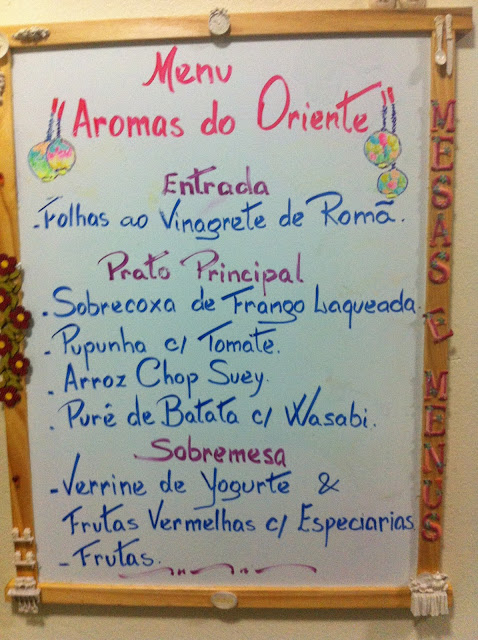 Menu
"Aromas do Oriente"
Entrada
- Folhas ao Vinagrete de Romã.
Prato Principal
- Sobrecoxa de Frango Laqueada.
- Pupunha c/ Tomate.
- Arroz Chop Suey.
- Purê de Batata c/ Wasabi.
Sobremesa
- Verrine de Yogurte &
Frutas Vermelhas c/ Especiarias
- Frutas.
MESAS E MENUS